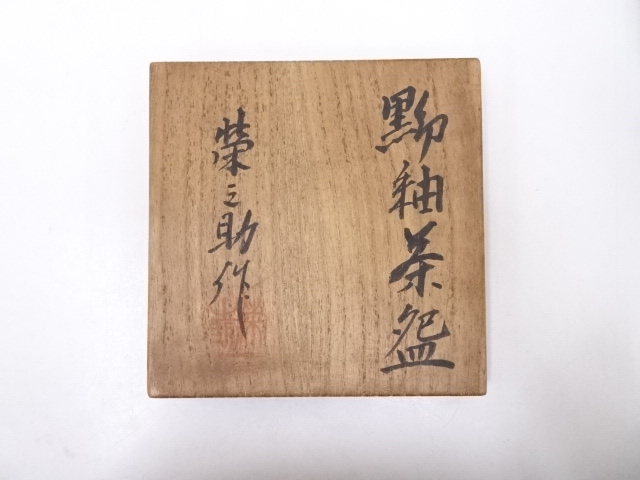 黝釉茶盌
榮之助作